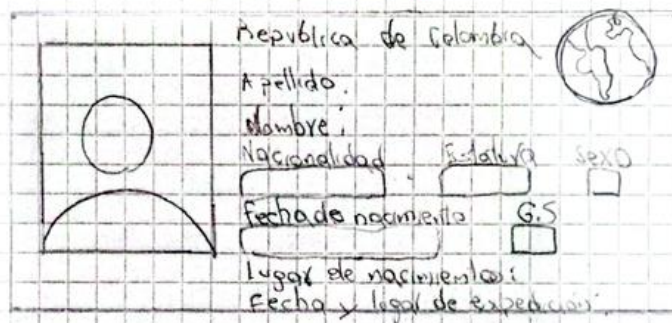 Republica de Colombia
Apellido.
Nombre:
Nacionalidad Estatura Sexo
Fecha de nacimiento G.S
Lugar de nacimiento:
Fecha y lugar de expedicion: